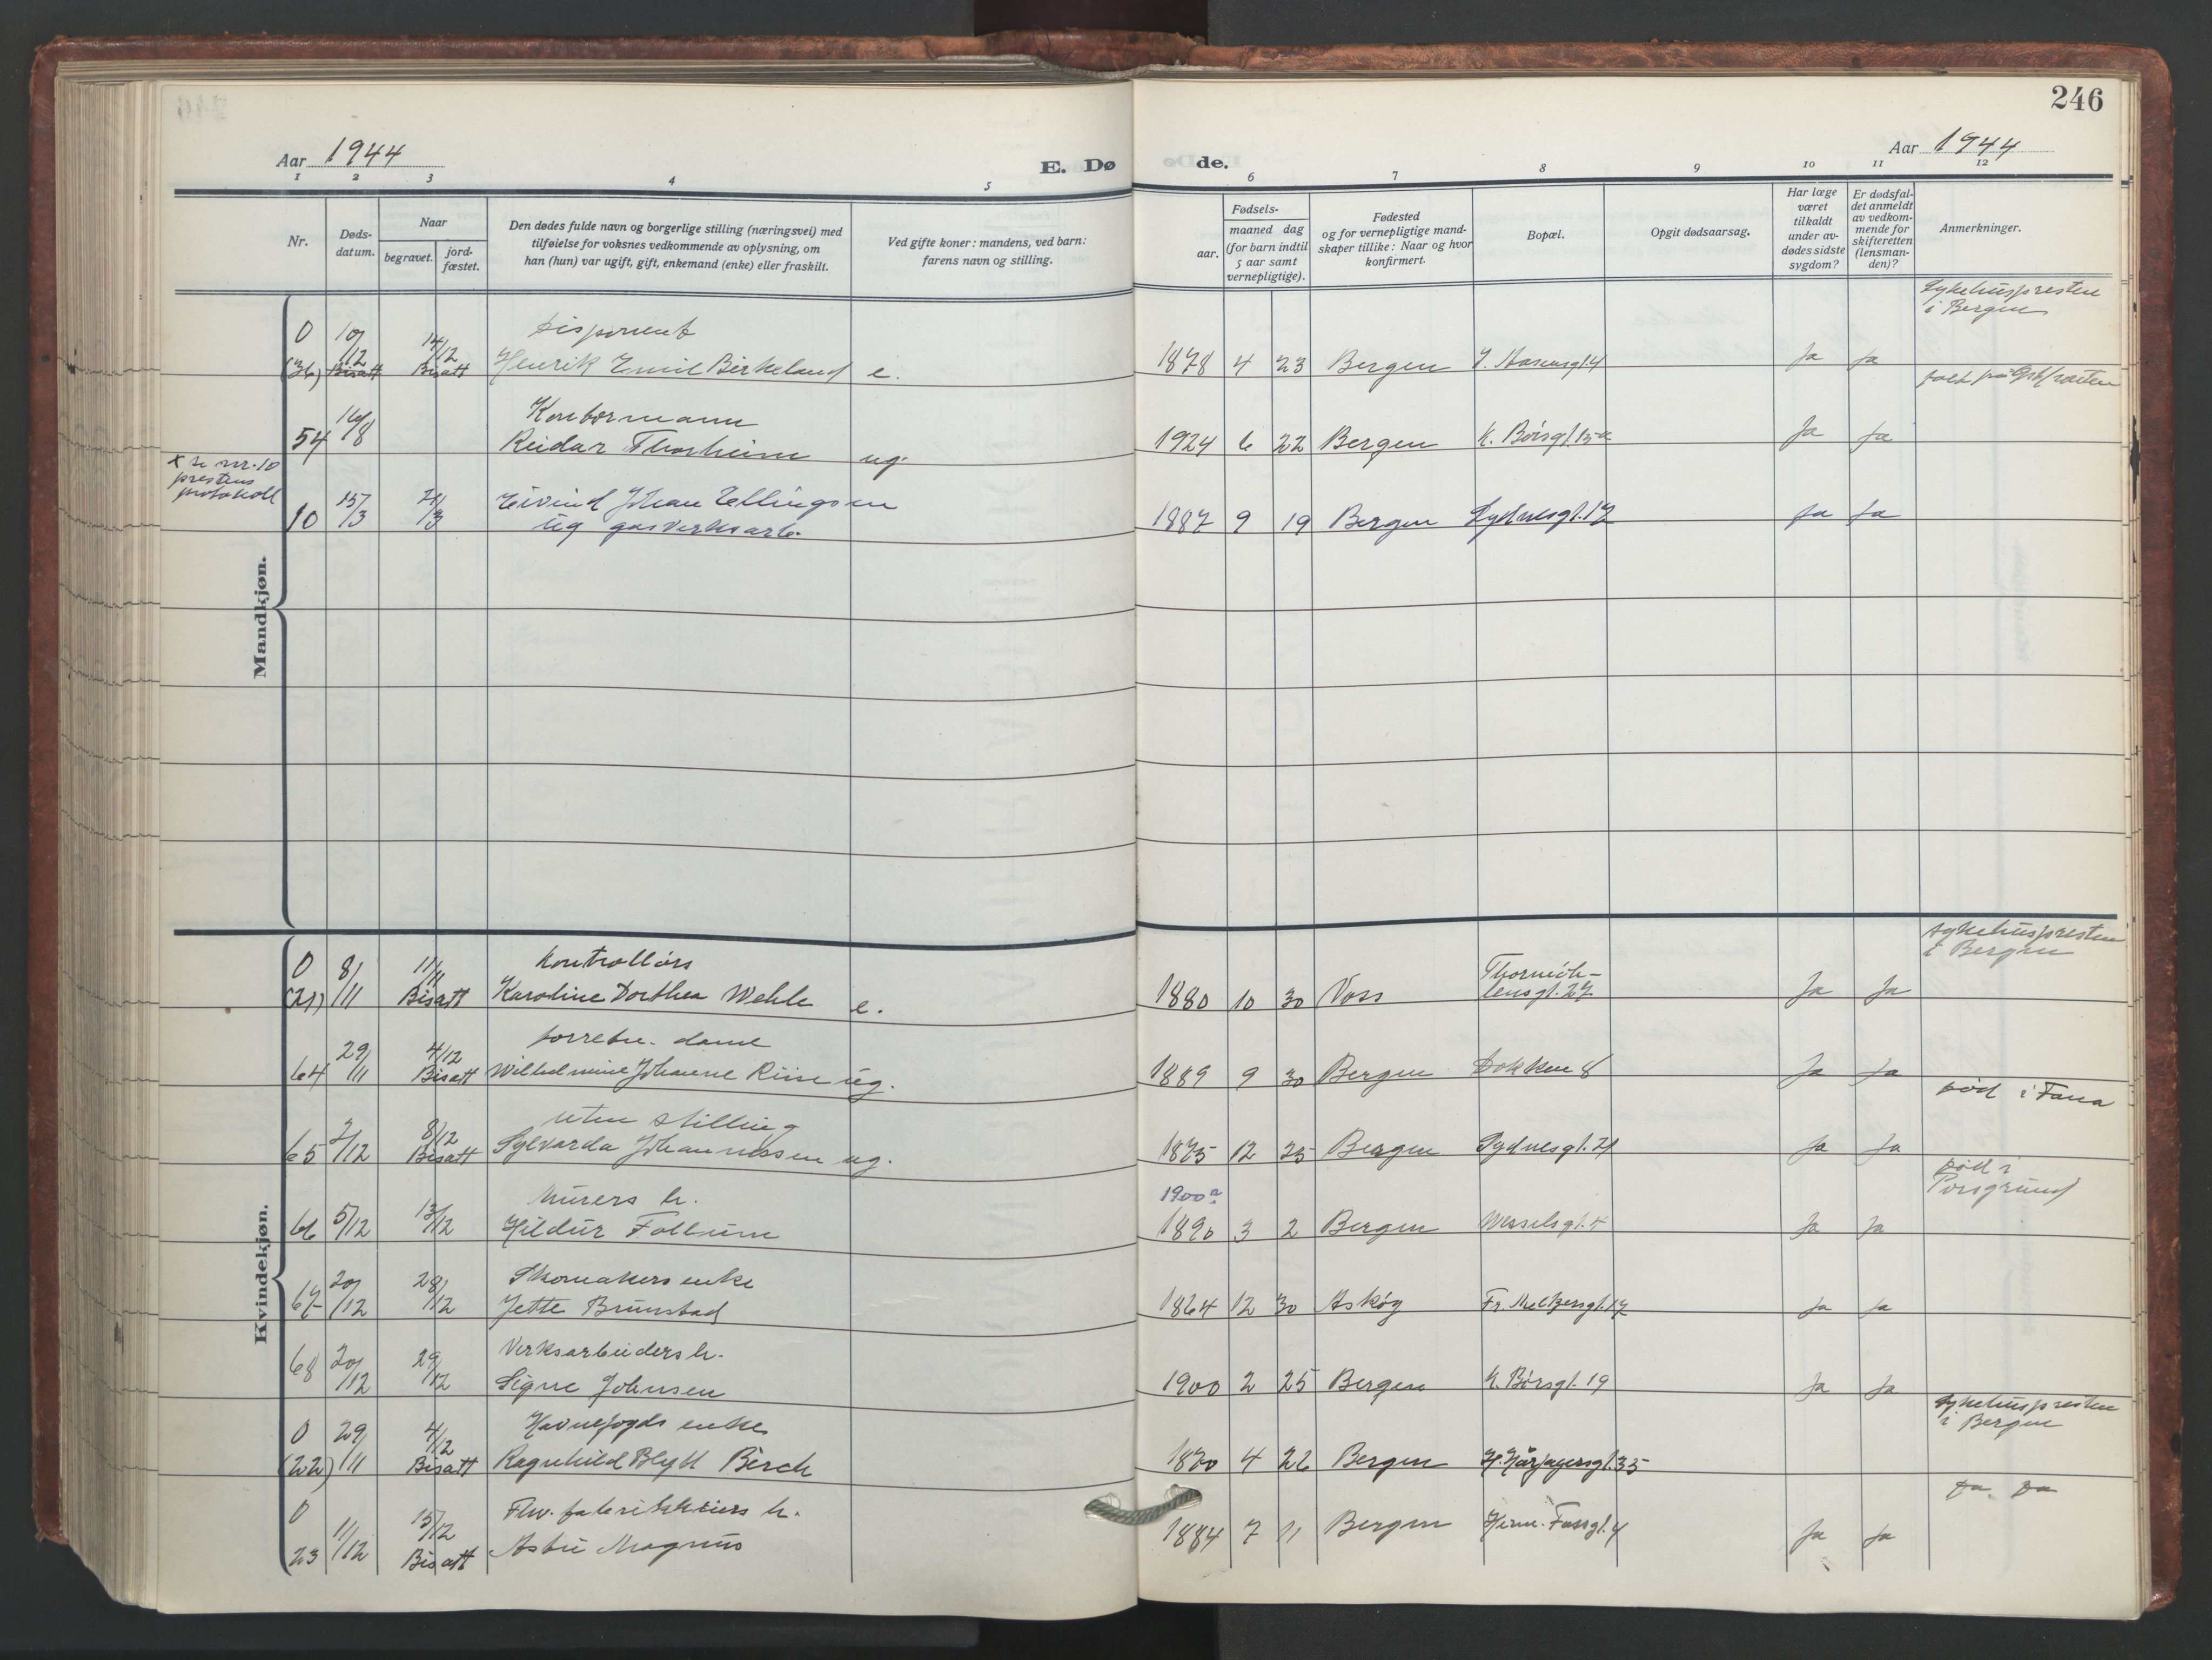 246
Aar 1944
E. Dø de.
Aar 1944
1 2 3 4 5 6 7 8 9 10 11 12
Nr.
Døds-
datum.
Naar
begravet.
jord-
fæstet.
Den dødes fulde navn og borgerlige stilling (næringsvei) med
tilføielse for voksnes vedkommende av oplysning, om
han (hun) var ugift, gift, enkemand (enke) eller fraskilt.
Ved gifte koner: mandens, ved barn:
farens navn og stilling.
Fødsels-
aar.
maaned dag
(for barn indtil
5 aar samt
vernepligtige).
Fødested
og for vernepligtige mand-
skaper tillike: Naar og hvor
konfirmert.
Bopæl.
Opgit dødsaarsag.
Har læge
været
tilkaldt
under av-
dødes sidste
sygdom?
Er dødsfal-
det anmeldt
av vedkom-
mende for
skifteretten
(lensman-
den)?
Anmerkninger.
Mandkjøn.
Sykehuspresten
i Bergen
0 10/12 14/12 Disponent
(36) Bisatt Bisatt Henrik Emil Birkeland e. 1878 4 23 Bergen I. Aasensgt. 4 Ja Ja
falt på Østfronten
16/8 Kontormann
54 Reidar Thorheim ug. 1924 6 22 Bergen K. Børsgt. 15a Ja Ja
x se nr. 10
prestens
protokoll
10 15/3 21/3 Eivind Johan Ellingsen 1887 9 19 Bergen Sydnesgt. 17 Ja Ja
ug gasverksarb.
Kvindekjøn.
Sykehuspresten
i Bergen
0 8/11 11/11 Kontrollørs
(21) Bisatt Karoline Dorthea Wehle e. 1880 10 30 Voss Thormøh-
lensgt. 27 Ja Ja
29/11 4/12 forretn. dame
64 Bisatt Wilhelmine Johanne Riise ug. 1889 9 30 Bergen Dokken 8 Ja Ja
født i Fana
2/12 8/12 uten stilling
65 Bisatt Sylvarda Johannessen ug. 1875 12 25 Bergen Sydnesgt. 21 Ja Ja
født i
Porsgrund
5/12 13/12 Murers h. 1900?
66 Hildur Follum 1890 3 2 Bergen Wesselsgt. 4 Ja Ja
20/12 28/12 Skomakers enke
67 Jette Brunstad 1864 12 30 Askøy Fr. Meltzersgt. 17 Ja Ja
68 20/12 29/12 Verksarbeiders h.
Signe Johnsen 1900 2 25 Bergen K. Børsgt. 19 Ja Ja
Sykehuspresten
i Bergen
0 29/11 4/12 Havnefogds enke
(22) Bisatt Ragnhild Blytt Birch 1870 4 26 Bergen H. Hårfagersgt. 35
0 11/12 15/12 Fhv. fabrikkeiers h.
23 Bisatt Magnus 1884 7 11 Bergen Herm. Fossgt. 4 Ja Ja